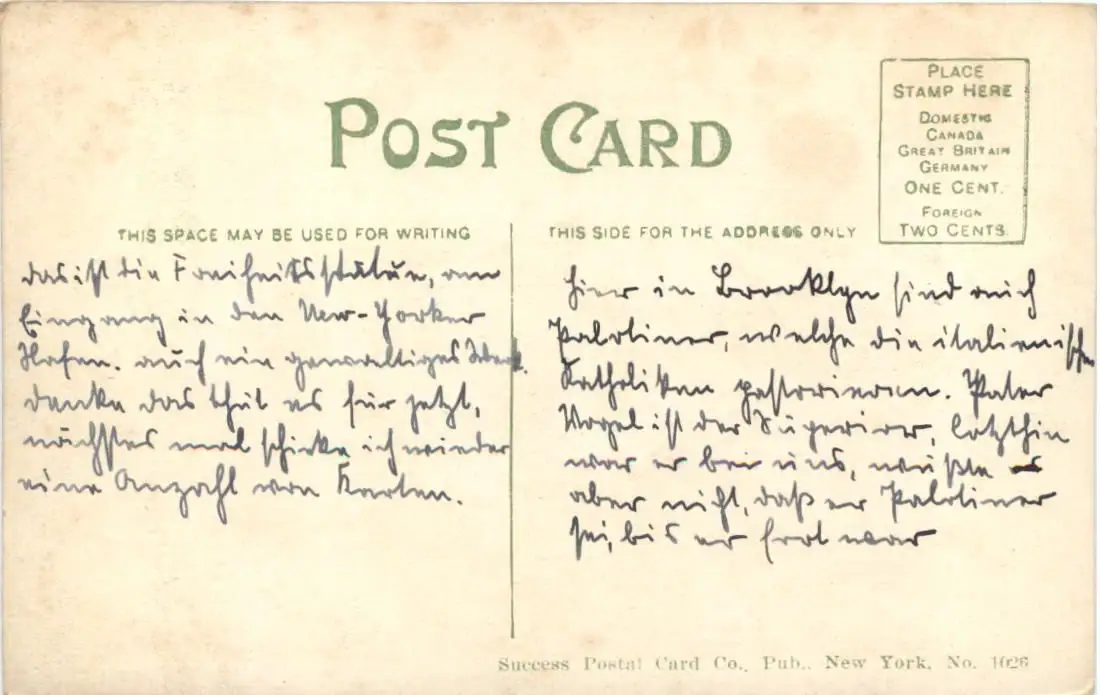 POST CARD
PLACE
STAMP HERE
DOMESTIC
CANADA
GREAT BRITAIN
GERMANY
ONE CENT.
FOREIGN
TWO CENTS.
THIS SPACE MAY BE USED FOR WRITING
das ist die Freiheitsstatue, am
Eingang in den New-Yorker
Hafen. auch ein gewaltiges Werk.
danke das thut es für jetzt,
nächstes mal schicke ich wieder
eine Anzahl von Karten.
THIS SIDE FOR THE ADDRESS ONLY
hier in Brooklyn sind auch
Palotiner, welche die italienischen
Katholiken pastorieren. Pater
Vogel ist der Superior, letzthin
war er bei uns, wußte
aber nicht, daß er Palotiner
sei, bis er fort war
Success Postal Card Co., Pub., New York, No. 1026